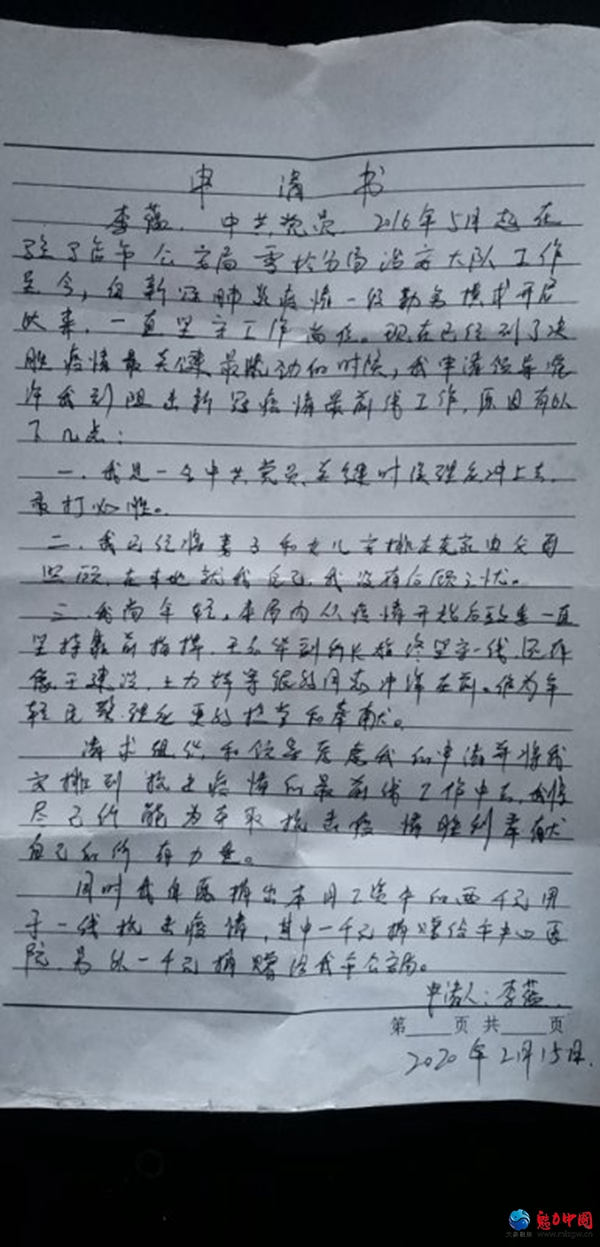 申请书
李蕴,中共党员,2016年5月起在
驻马店市公安局雪松分局治安大队工作
至今,自新冠肺炎疫情一级勤务模式开启
以来,一直坚守工作岗位。现在已经到了决
胜疫情最关键最胶动的时候,我申请领导允
许我到阻击新冠疫情最前线工作,原因有以
下几点:
一、我是一名中共党员,关键时候理应冲上去,
敢打必胜。
二、我已经将妻子和女儿安排在老家由父母
照顾,在本地就我自己,我没有后顾之忧。
三、我尚年轻,本局内从疫情开始后一直
坚持靠前指挥,到所长始终坚守一线,还有
像王建设、等很多同志冲锋在前。作为年
轻民警理应更多担当和奉献。
请求组织和领导考虑我的申请并将我
安排到抗击疫情的最前线工作中去,我将
尽己所能为夺取抗击疫情胜利奉献
自己的所有力量。
同时我自愿捐出本月工资中的两千元用
于一线抗击疫情,其中一千元捐赠给市中心医
院,另外一千元捐赠给我市公安局。
申请人:李蕴
第 页 共 页
2020年2月15日.
魅力中国